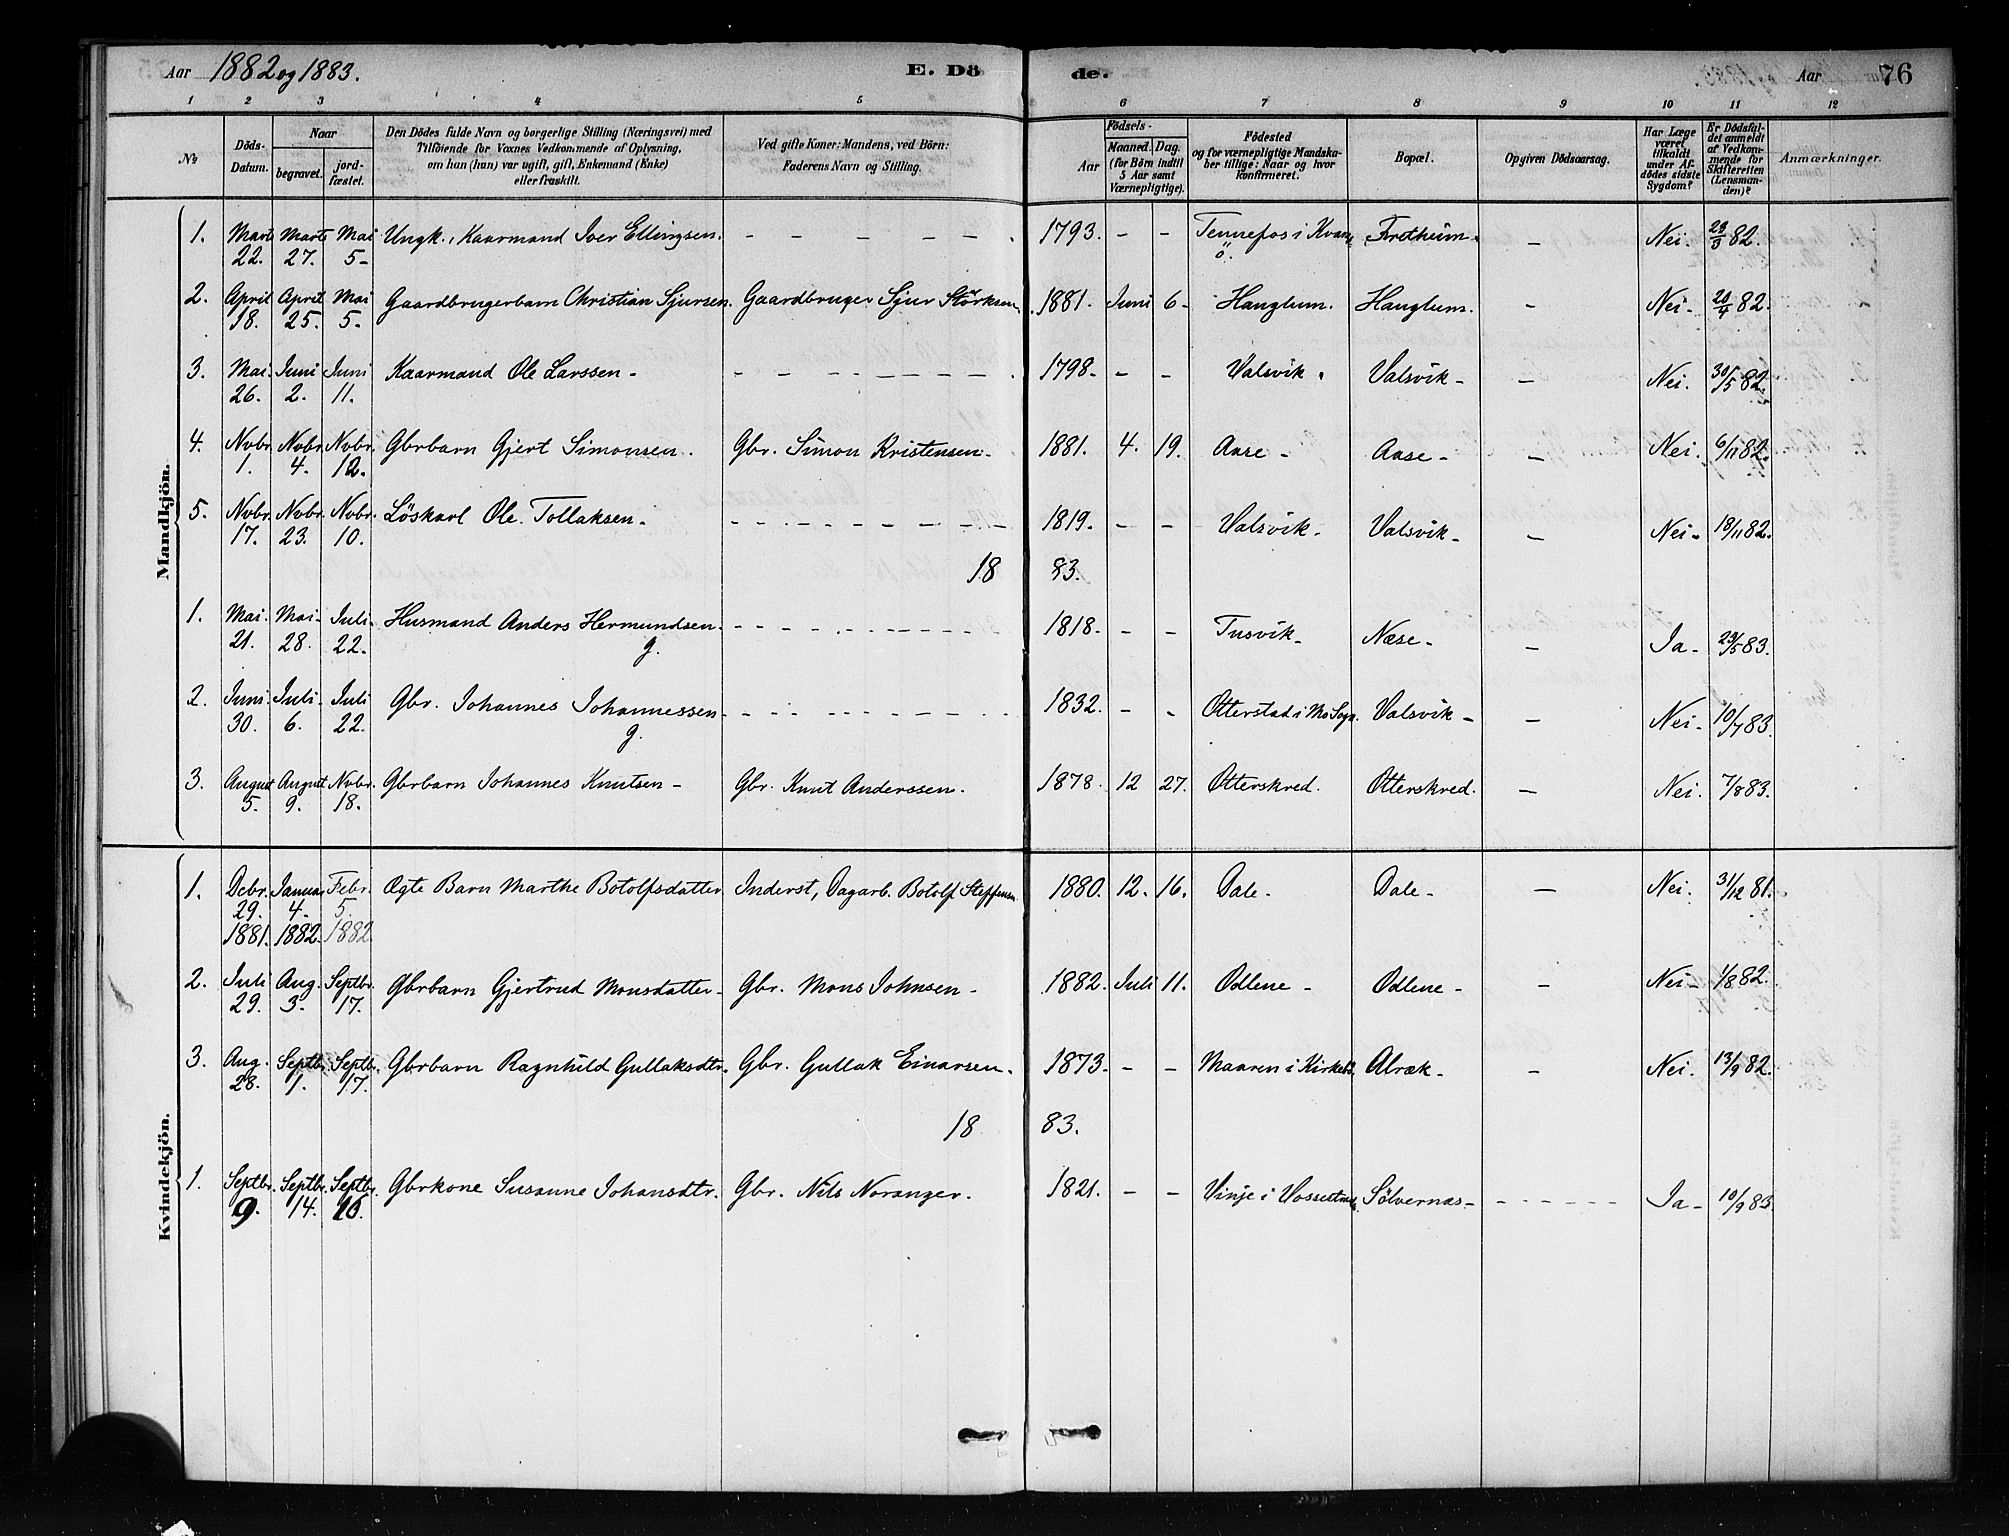 Aar 1882 og 1883. E. Dö de. Aar 76
1 2 3 4 5 6 7 8 9 10 11 12
No
Döds-Datum.
Naar
begravet.
jord-fæstet.
Den Dödes fulde Navn og borgerlige Stilling (Næringsvei) med
Tilföiende for Voxnes Vedkommende af Oplysning,
om han (hun) var ugift, gift, Enkemand (Enke)
eller fraskilt.
Ved gifte Koner: Mandens, ved Börn:
Faderens Navn og Stilling.
Födsels-
Aar
Maaned. Dag.
(for Börn indtil
5 Aar samt
Værnepligtige).
Födested
og for værnepligtige Mandska-
ber tillige: Naar og hvor
konfirmeret.
Bopæl.
Opgiven Dödsaarsag.
Har Læge
været
tilkaldt
under Af-
dödes sidste
Sygdom?
Er Dödsfal-
det anmeldt
af Vedkom-
mende for
Skifteretten
(Lensman-
den)?
Anmærkninger.
Mandkjön.
1. Marts 22. Marts 27. Mai 5 - Ungk., Kaarmand Iver Ellingsen. - - - - - 1793. - - Tennefos i Kvam ö. Fretheim. - Nei. 23/3 82.
2. April 18. April 25. Mai 5. Gaardbrugerbarn Christian Sjursen. Gaardbruger Sjur Størksen. 1881. Juni 6 - Hanglum. Hanglum. - Nei - 20/4 82.
3. Mai 26. Juni 2. Juni 11. Kaarmand Ole Larssen - - - - - - 1798 - - - Valsvik. Valsvik - - Nei. 30/5 82.
4. Novbr. 1. Novbr. 4. Novbr. 12. Gbrbarn Gjert Simonsen. Gbr. Simon Kristensen - 1881. 4. 19. Aase - Aase - - Nei. 6/11 82.
5. Novbr. 17. Novbr. 23. Novbr. 10. Löskarl Ole Tollaksen. - - - - - - 1819. - - Valsvik - Valsvik - - Nei - 18/11 82.
18 83.
1. Mai. 21. Mai - 28. Juli - 22. Husmand Anders Hermundsen. g. - - - - - - 1818 - - - Tusvik - Næse - - Ja - 23/5 83.
2. Juni 30. Juli 6. Juli 22. Gbr. Johannes Johannessen g. - - - - - - 1832. - - Otterstad i Mo Sogn. Valsvik - - Nei - 10/7 83.
3. August 5. August 9. Novbr. 18. Gbrbarn Johannes Knutsen - Gbr. Knut Anderssen. 1878. 12 27. Otterskred. Otterskred. - Nei. 7/8 83.
Kvindekjön.
1. Debr. 29. 1881. Januar 4. 1882. Febr. 5. 1882 Ægte Barn Marthe Botolfsdatter Inderst, Dagarb. Botolf Steffensen. 1880. 12. 16. Dale - Dale - - Nei. 31/12 81.
2. Juli 29. Aug. 3. Septbr. 17. Gbrbarn Gjertrud Monsdatter - Gbr. Mons Johnsen - 1882. Juli 11. Odlene - Odlene - - Nei - 1/8 82.
3. Aug. 28. Septbr. 1. Septbr. 17. Gbrbarn Ragnhild Gullaksdtr. Gbr. Gullak Einarsen. 1873. - - Maaren i Kirkebø. Alræk. - Nei. 13/9 82.
18 83.
1. Septbr. 9. Septbr. 14. Septbr. Gbrkone Susanne Johansdtr. Gbr. Nils Noranger. 1821. - - Vinje i Vossestrand. Sölvernæs - - - - - - Ja - 10/9 83.